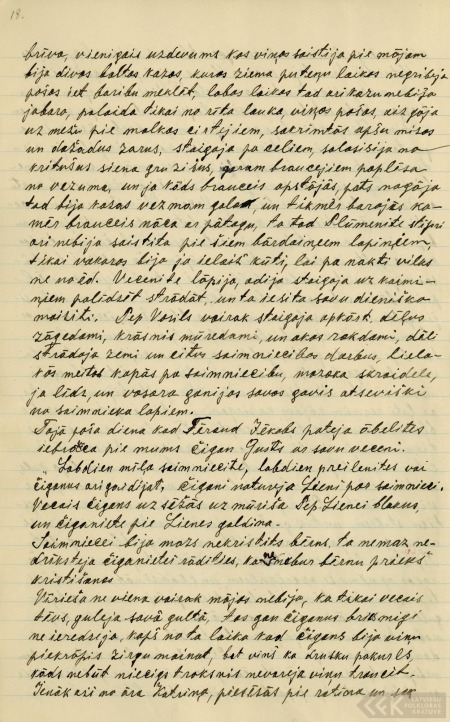 18.
brīva, vienigais uzdevums kas viņas saistija pie mājam
bija divas baltas kazas, kuras ziema puteņu laikos negribeja
pašas iet baribu meklēt, labos laikos tad arikazu nebija
jabaro, palaida tikai no rīta lauka, viņas pašas, aizgāja
uz mežu pie malkas cirtējiem, sakrimtās apšu mizas
un dažādus zarus, staigāja pa celiem, salasisija no
kritušus siena gružišus, garam braucejiem paplēsa
no vezuma, un ja kāds brauceis apstājās, pats nogāja
tad bija kazas vezmam galā, un tikmēs barojās ka-
mēs brauceis nāca ar pātagu, ta tad Plūmenite stipri
ari nebija saistita pie šiem bārdaineem lopineem,
tikai vakaros bija ja ielaiš kūti, lai pa nakti vilks
ne no ēd. Vecenite lāpija, adija staigaja uz kaimi-
ņiem palidzēt strādāt, un ta iesita savu dieniško
maiziti. Pep Vasils vairak staigaja apkārt, dēļus
zāgedami, krāsnis mūredami, un akas rakdami, dēli
strādaja zemi un citus saimniecibas darbus, liela-
kās meitas kopās pa saimniecibu, mazaka skraidele,
ja līdz, un vasara ganijas savas gavis atseviški
no saimnieka lopiem.
Tajā paša diena kad Jēkabs pateja ābelites
iebrauca pie mums čigan Gusts ar savu veceni.
„Labdien mīļa saimniecite, labdien preilenites vai
čiganus arigaidijat, čigani natureja Lieni par saimnieci.
Vecais čigans uzsēžās uz mūriša Pep Lienei blakus,
un čiganiete pie Lienes galdina.
Saimniecei bija mazs nekristits bērns, ta nemaz ne-
driksteja čiganietei rādities, ka nenobur bērnu priekš
kristišanas
Viriešu ne viena vairak mājas nebija, ka tikai vecais
tēvs, guleja savā gultā, tas gan čiganus briesmigi
ne ieredzeja, kopš no ta laika kad čigans bija viņu
piekrāpis zirgu mainot, bet viņš ka drusku pakurls,
kāds nebūt niecigs troksnis nevareja viņu traucet.
Ienāk ari no āra Katrina, piesēžās pie ratina un sak
LATVIEŠU
FOLKLORAS
KRĀTUVE